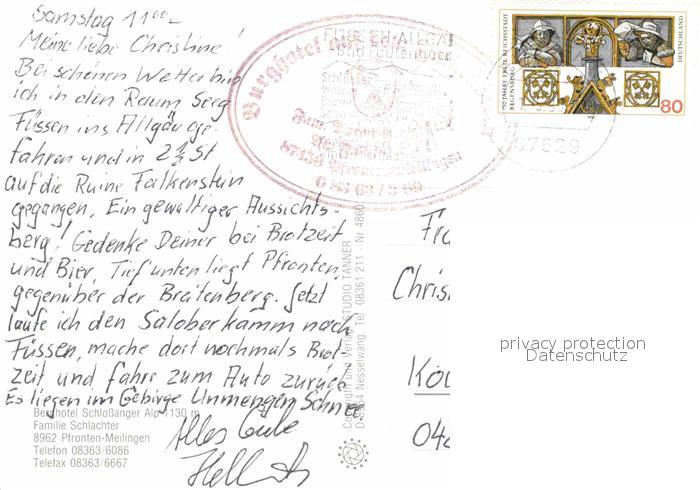 Samstag 11ºº
Meine liebe Christine!
Bei schönem Wetter bin
ich in den Raum Seeg
Füssen ins Allgäu ge-
fahren und in 2½ St
auf die Ruine Falkenstein
gegangen. Ein gewaltiger Aussichts-
berg! Gedenke Deiner bei Brotzeit
und Bier. Tief unten liegt Pfronten,
gegenüber der Breitenberg. Jetzt
laufe ich den Saloberkamm nach
Füssen, mache dort nochmals Brot-
zeit und fahre zum Auto zurück
Es liegen im Gebirge Unmengen Schnee
Alles Gute
Berghotel Schloßanger Alp 1130 m
Familie Schlachter
8962 Pfronten-Meilingen
Telefon 08363/6086
Telefax 08363/6667
Copyright und Verlag STUDIO TANNER
D-8964 Nesselwang, Tel. 08361 211 - Nr. 4860
Burghotel
FÜSSEN-ALLGÄU
Bad Faulenbach
87629
750 JAHRE FREIE REICHSSTADT
REGENSBURG
DEUTSCHLAND
80
Fra
Chris
Kö
privacy protection
Datenschutz